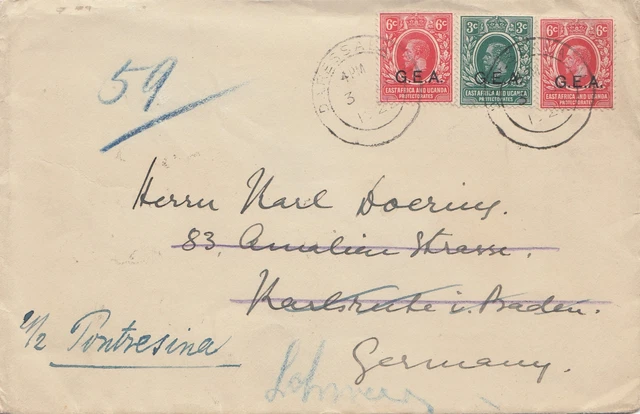 6c 6c 3c 3c 6c 6c
G.E.A. G.E.A. G.E.A.
EAST AFRICA AND UGANDA PROTECTORATES
EAST AFRICA AND UGANDA PROTECTORATES
EAST AFRICA AND UGANDA PROTECTORATES
4 PM
3
59
Herrn Karl Doering.
83. Amalien Strasse.
Karlsruhe i. Baden.
Germany.
Pontresina